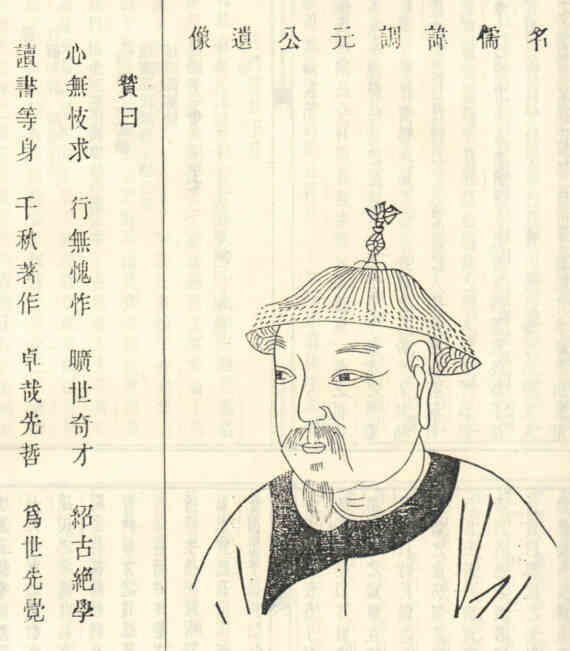 名儒諱調元公遺像
贊曰
心無忮求 行無愧怍 曠世奇才 紹古絶學
讀書等身 千秋著作 卓哉先哲 爲世先覺